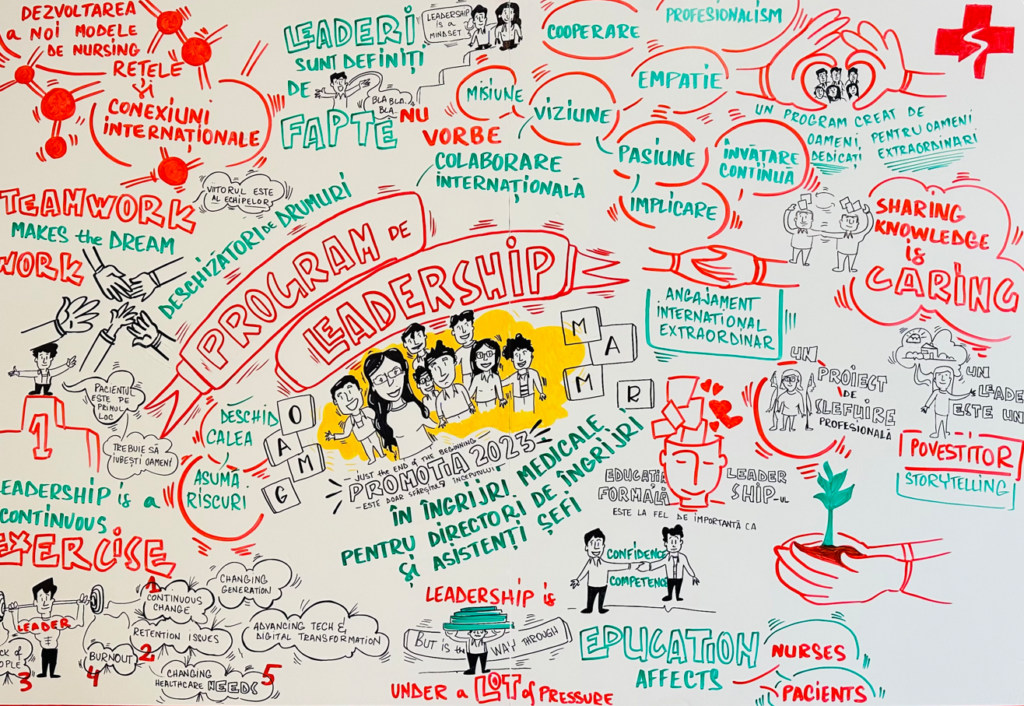 DEZVOLTAREA
a NOI MODELE
DE NURSING
REȚELE
și
CONEXIUNI
INTERNAȚIONALE
LEADERI
SUNT DEFINIȚI
DE
FAPTE
NU
VORBE
BLA BLA
BLA
LEADERSHIP
is a
MINDSET
COOPERARE
PROFESIONALISM
MISIUNE
VIZIUNE
EMPATIE
PASIUNE
ÎNVĂȚARE
CONTINUĂ
IMPLICARE
COLABORARE
INTERNAȚIONALĂ
UN PROGRAM CREAT DE
OAMENI
DEDICAȚI
PENTRU OAMENI
EXTRAORDINARI
TEAMWORK
MAKES the DREAM
WORK
VIITORUL ESTE
AL ECHIPELOR
DESCHIZĂTORI DE DRUMURI
PROGRAM DE
LEADERSHIP
SHARING
KNOWLEDGE
is
CARING
ANGAJAMENT
INTERNAȚIONAL
EXTRAORDINAR
PACIENTUL
ESTE PE
PRIMUL
LOC
1
TREBUIE SĂ
IUBEȘTI OAMENI
DESCHID
CALEA
ASUMĂ
RISCURI
O
A
M
G
M
A
M
R
JUST the END OF the BEGINNING
PROMOȚIA 2023
ESTE DOAR SFÂRȘITUL ÎNCEPUTULUI
ÎN ÎNGRIJIRI MEDICALE
PENTRU DIRECTORI DE ÎNGRIJIRI
ȘI ASISTENȚI ȘEFI
UN
PROIECT
DE
ȘLEFUIRE
PROFESIONALĂ
UN
LEADE
ESTE UN
POVESTITOR
STORYTELLING
EDUCAȚIA
FORMALĂ
LEADER
SHIP-UL
ESTE LA FEL DE IMPORTANTĂ CA
LEADERSHIP is a
CONTINUOUS
EXERCISE
LEADER
CK of
OPLE
3
BURNOUT
4
1
CONTINUOUS
CHANGE
CHANGING
GENERATION
RETENTION ISSUES
2
ADVANCING TECH &
DIGITAL TRANSFORMATION
CHANGING
HEALTHCARE NEEDS
5
LEADERSHIP is
BUT IS the WAY THROUGH
UNDER a LOT of PRESSURE
CONFIDENCE
COMPETENCE
EDUCATION
AFFECTS
NURSES
PACIENTS